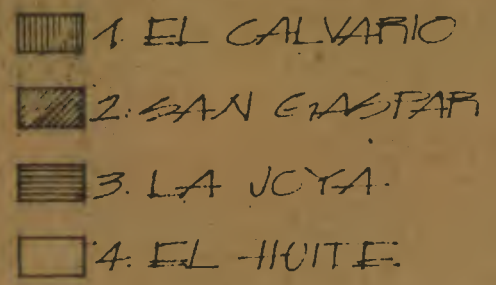 1. EL CALVARIO
2. SAN GASPAR
3. LA JOYA.
4. EL HUITE.